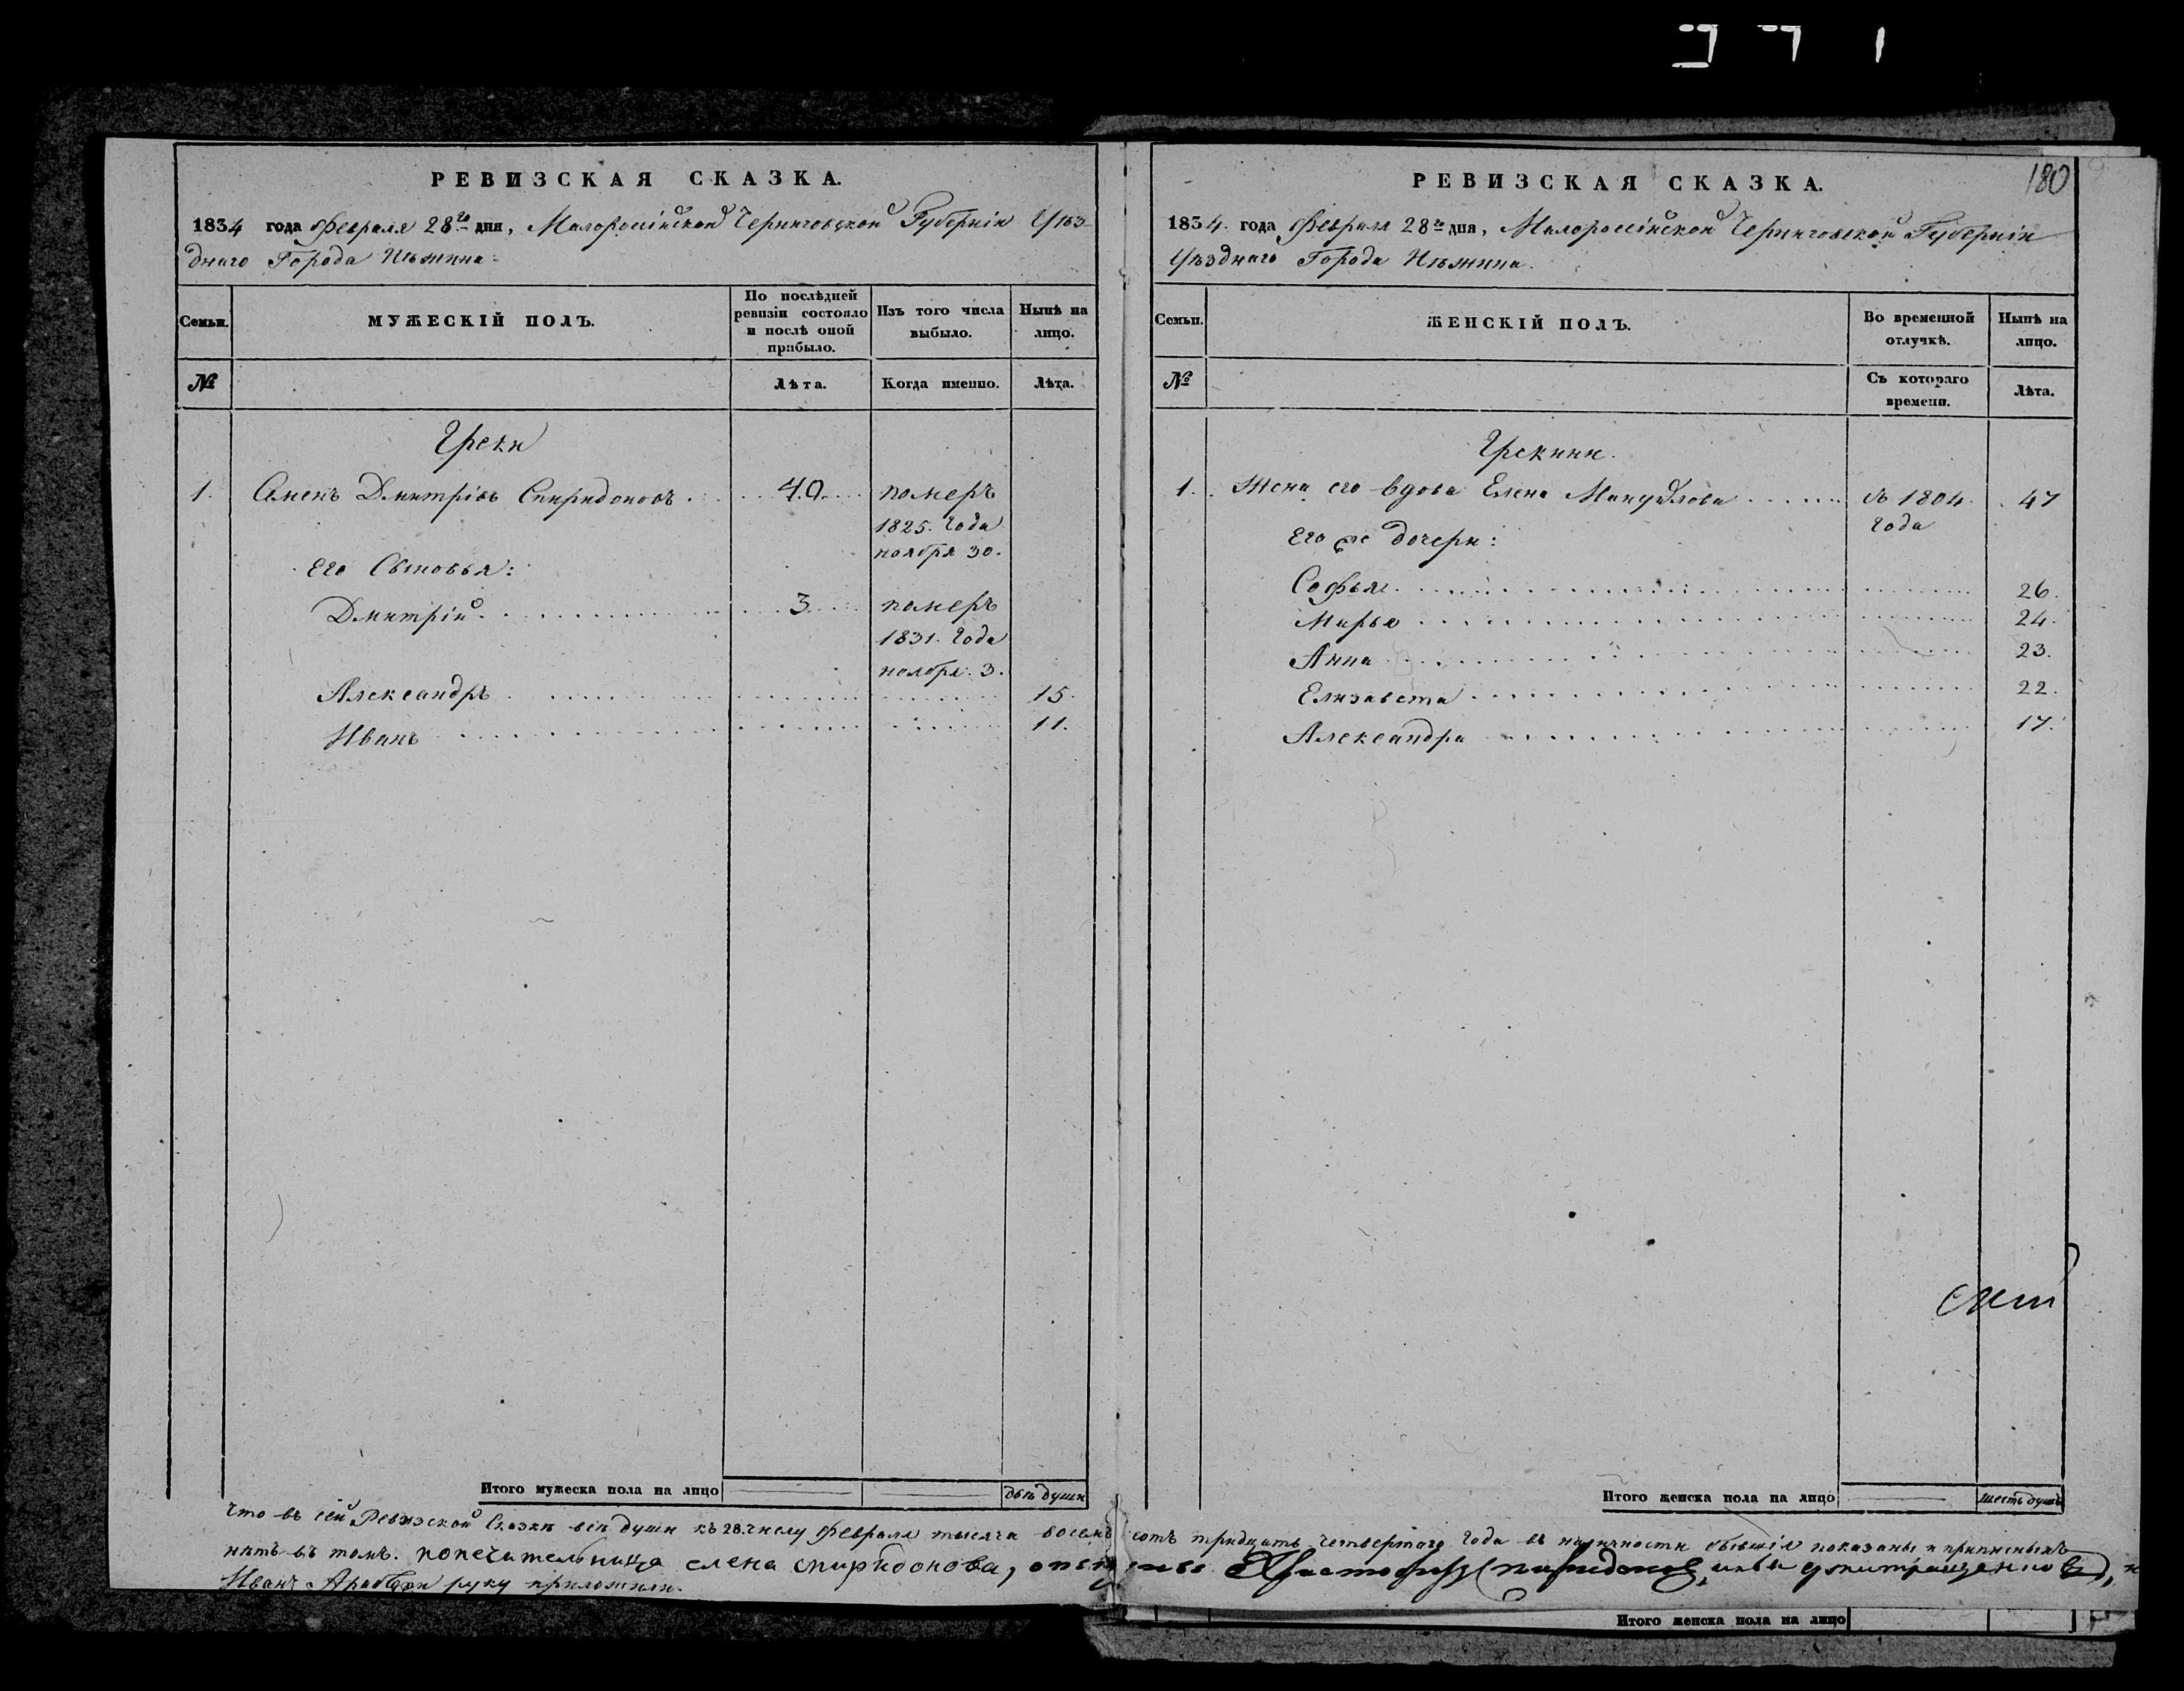 РЕВИЗСКАЯ СКАЗКА.
1834 года февраля 28го дня, Малоросийской Черниговской Губернiи Уѣз-
днаго Города Нѣжина:
Семьи.
МУЖЕСКIЙ ПОЛЪ.
По послѣдней ревизiи состояло и послѣ оной прибыло.
Изъ того числа выбыло.
Нынѣ на лицо.
№
Лѣта.
Когда именно.
Лѣта.
Греки
1. Семенъ Дмитрiевъ Спиридоновъ . 40. померъ
1825. года
ноября 30.
Его Сыновья:
Дмитрiй 3 померъ
1831. года
ноября. 3.
Александръ 15.
Иванъ 11.
Итого мужеска пола на лицо двѣ души
180
РЕВИЗСКАЯ СКАЗКА.
1834. года февраля 28го дня, Малоросiйской Черниговской Губернiи
Уѣзднаго Города Нѣжина.
Семьи.
ЖЕНСКIЙ ПОЛЪ.
Во временной отлучкѣ.
Нынѣ на лицо.
№
Съ котораго времени.
Лѣта.
Грекини.
1. Жена его вдова Елена Мануйлова съ 1804 47
года
Его же дочери:
Софья 26.
Марья 24.
Анна 23.
Елизавета 22.
Александра 17.
Итого женска пола на лицо шесть душъ
Что въ сей Ревизской Сказкѣ всѣ души къ 28. числу февраля тысяча восемь сотъ тридцать четвертаго года въ наличности бывшiя показаны и приписныхъ
нѣтъ въ томъ. попечительница елена спиридонова, опекуны Христофоръ Спиридоновъ, и
Иванъ руку приложили.
Итого женска пола на лицо